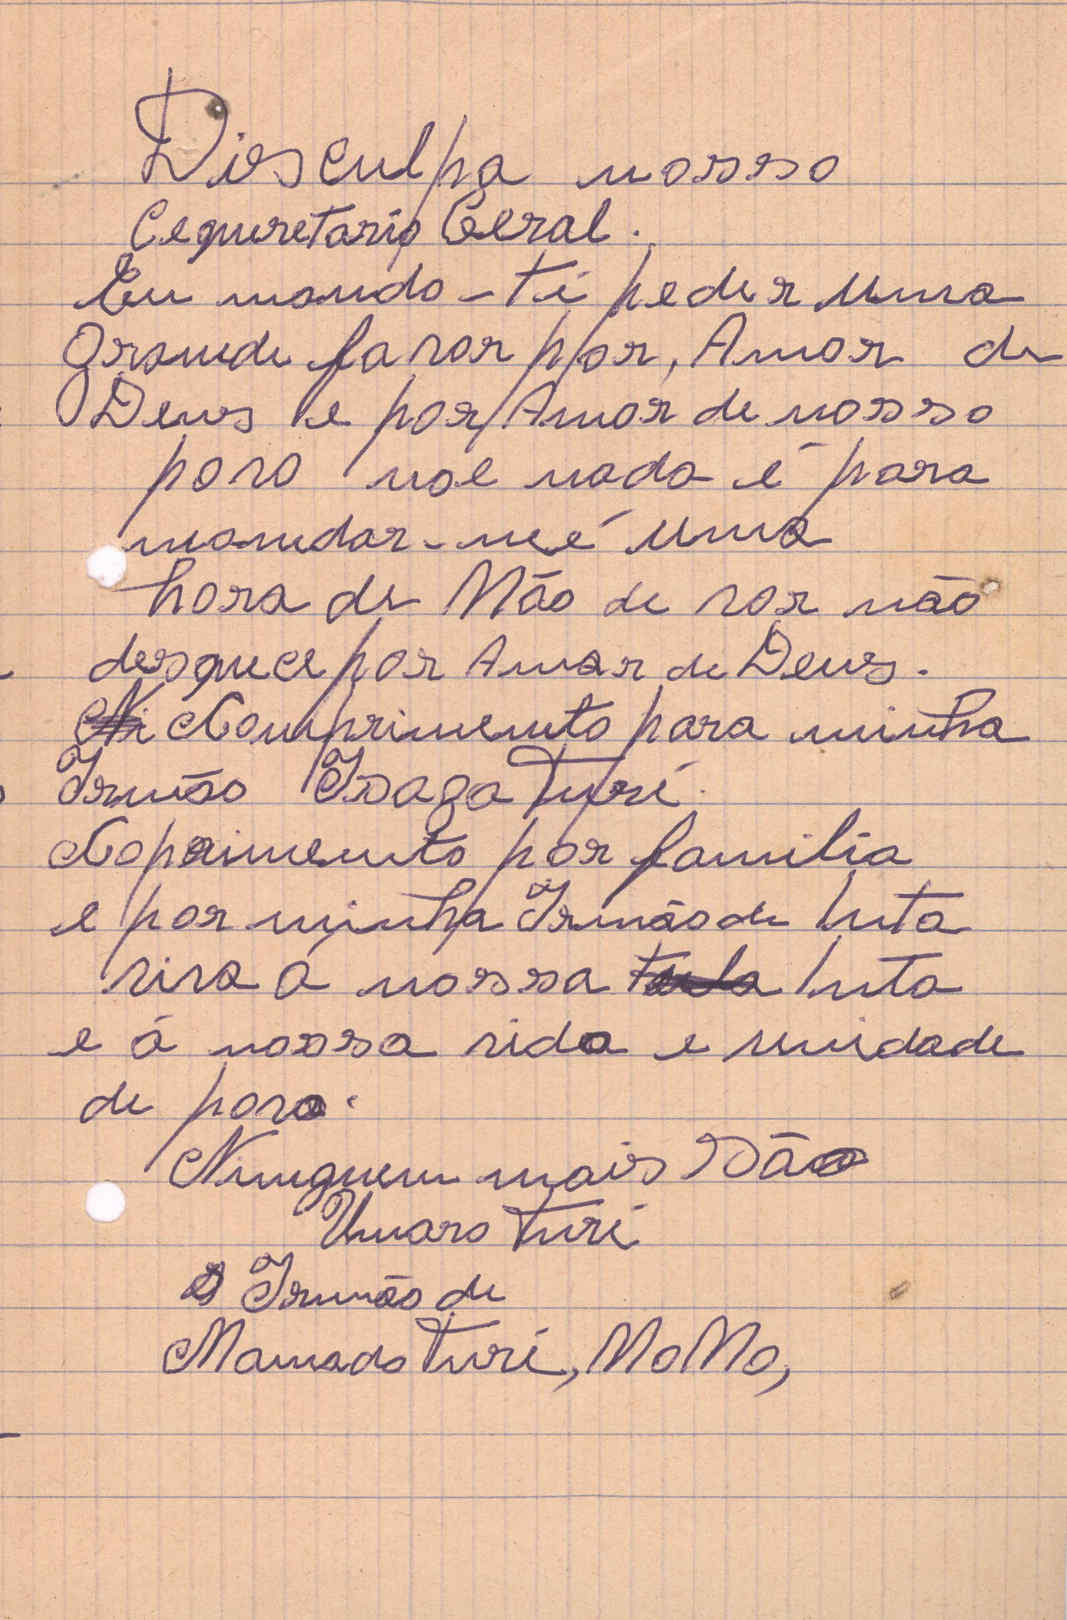 Diosculpa nosso
Cequretario Geral.
Eu mando-ti peder uma
Grande favor por, Amor de
Deus e por Amor de nosso
povo noe nada é para
mandar-meé uma
hora de Mão de vor não
desquece por Amar de Deus.
Ni Comprimento para minha
Irmão Isaga Turé.
Coprimento por familia
e por minha Irmão de luta
viva a nossa tula luta
e á nossa vida e unidade
de povo.
Ninguem mais são
Umaro Turé
Irmão de
Mamado Turé, MoMo,